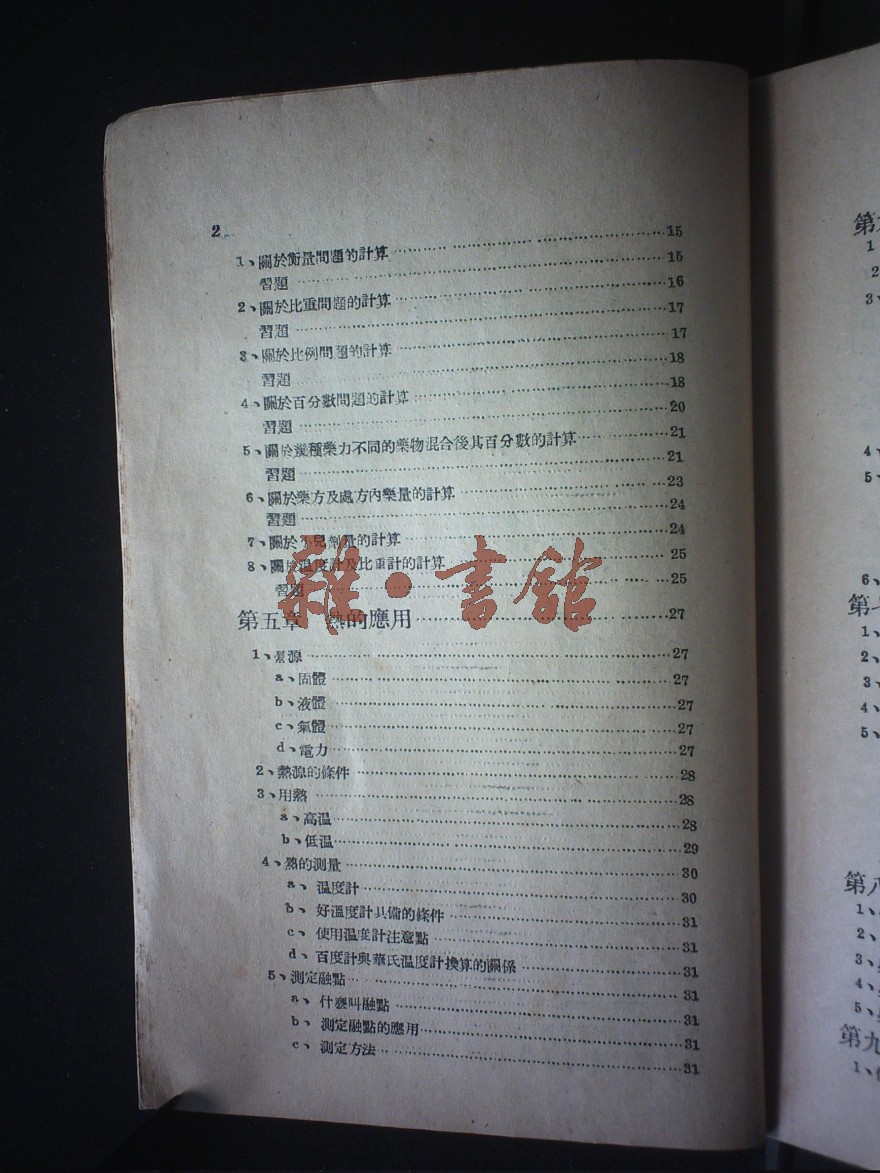 2
1、關於衡量問題的計算……15
習題……15
2、關於比重問題的計算……16
習題……17
3、關於比例問題的計算……17
習題……18
4、關於百分數問題的計算……18
習題……20
5、關於幾種藥力不同的藥物混合後其百分數的計算……21
習題……21
6、關於藥方及處方內藥量的計算……23
習題……24
7、關於小兒劑量的計算……24
8、關於温度計及比重計的計算……25
習題……25
雜·書館
第五章 熱的應用……27
1、熱源……27
a、固體……27
b、液體……27
c、氣體……27
d、電力……27
2、熱源的條件……28
3、用熱……28
a、高温……28
b、低温……29
4、熱的測量……30
a、温度計……30
b、好溫度計具備的條件……31
c、使用温度計注意點……31
d、百度計與華氏温度計換算的關係……31
5、測定融點……31
a、什麼叫融點……31
b、測定融點的應用……31
c、測定方法……31
1
2
3、
4、
5、
6、
1、
2、
3、
4、
5、
第八
1、
2、
3、
4、
5、
第九
1、